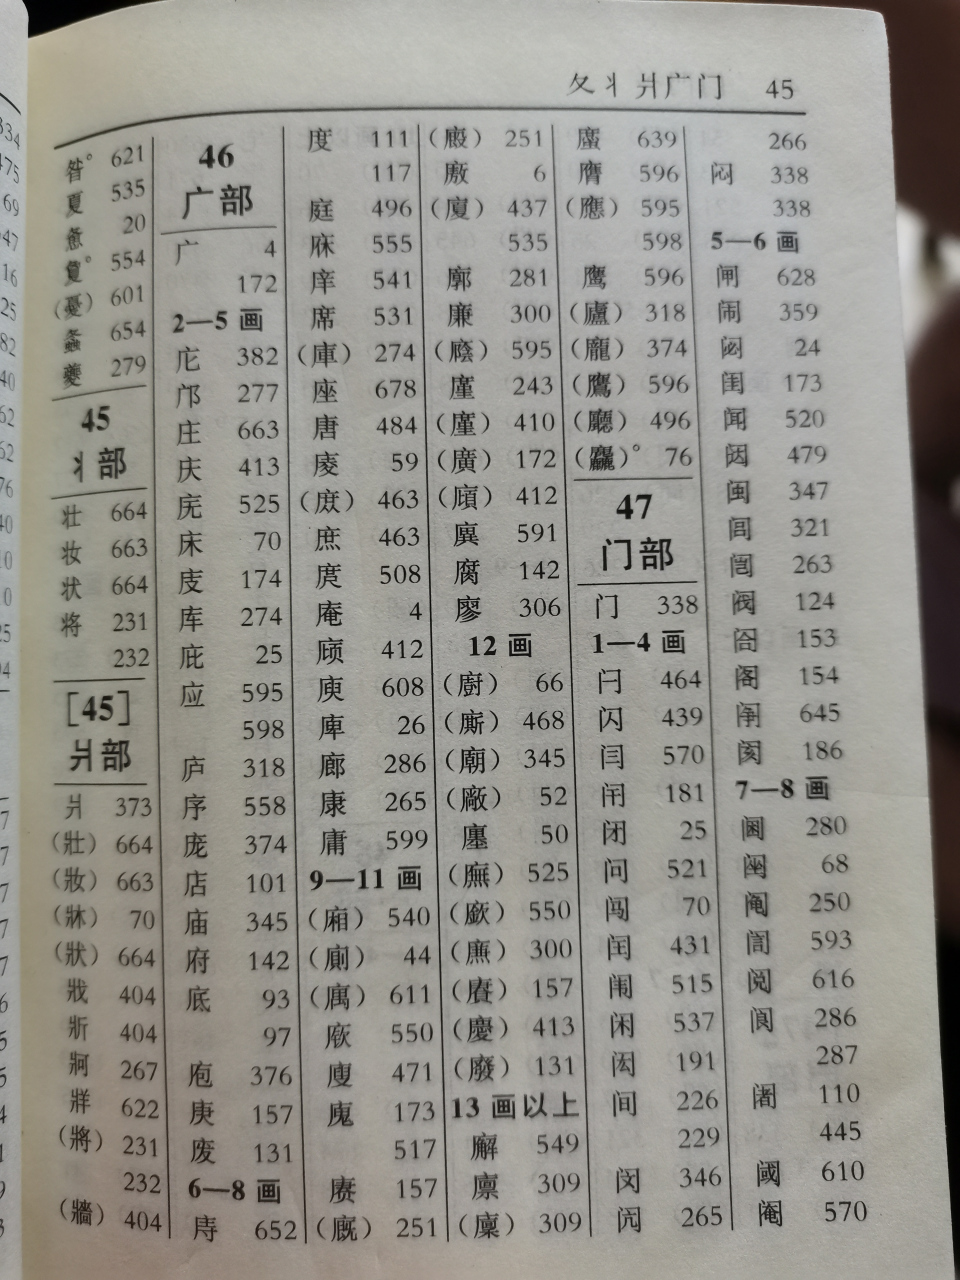 夂丬爿广门 45
621
夏 535
20
554
(憂) 601
螽 654
夔 279
45
丬部
壮 664
妆 663
状 664
将 231
232
[45]
爿部
爿 373
(壯) 664
(妝) 663
(牀) 70
(狀) 664
戕 404
斨 404
牁 267
牂 622
(將) 231
232
(牆) 404
46
广部
广 4
172
2—5 画
庀 382
邝 277
庄 663
庆 413
庑 525
床 70
庋 174
库 274
庇 25
应 595
598
庐 318
序 558
庞 374
店 101
庙 345
府 142
底 93
97
庖 376
庚 157
废 131
6—8 画
庤 652
度 111
117
庭 496
庥 555
庠 541
席 531
(庫) 274
座 678
唐 484
廋 59
(庻) 463
庶 463
庹 508
庵 4
庼 412
庾 608
庳 26
廊 286
康 265
庸 599
9—11 画
(廂) 540
(廁) 44
(庽) 611
廞 550
廋 471
廆 173
517
赓 157
(廐) 251
(廏) 251
廒 6
(廈) 437
535
廓 281
廉 300
(廕) 595
廑 243
(廑) 410
(廣) 172
(廎) 412
廙 591
腐 142
廖 306
12 画
(廚) 66
(廝) 468
(廟) 345
(廠) 52
廛 50
(廡) 525
(廞) 550
(廡) 300
(賡) 157
(慶) 413
(廢) 131
13 画以上
廨 549
廪 309
(廩) 309
鏖 639
膺 596
(應) 595
598
鹰 596
(廬) 318
(龐) 374
(鷹) 596
(廳) 496
76
47
门部
门 338
1—4 画
闩 464
闪 439
闫 570
闬 181
闭 25
问 521
闯 70
闰 431
闱 515
闲 537
闳 191
间 226
229
闵 346
闶 265
266
闷 338
338
5—6 画
闸 628
闹 359
闷 24
闺 173
闻 520
闼 479
闽 347
闾 321
闿 263
阀 124
阁 153
阁 154
阐 645
阂 186
7—8 画
阃 280
阄 68
阉 250
訚 593
阅 616
阆 286
287
阇 110
445
阈 610
阉 570